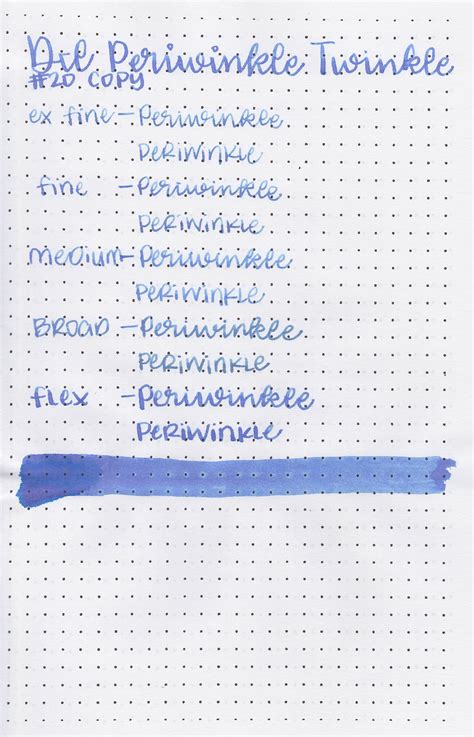 Dil Periwinkle Twinkle
#20 COPY
ex fine - Periwinkle
PERIWINKLE
fine - Periwinkle
PERIWINKLE
medium - Periwinkle
PERIWINKLE
BROAD - Periwinkle
PERIWINKLE
flex - Periwinkle
PERIWINKLE